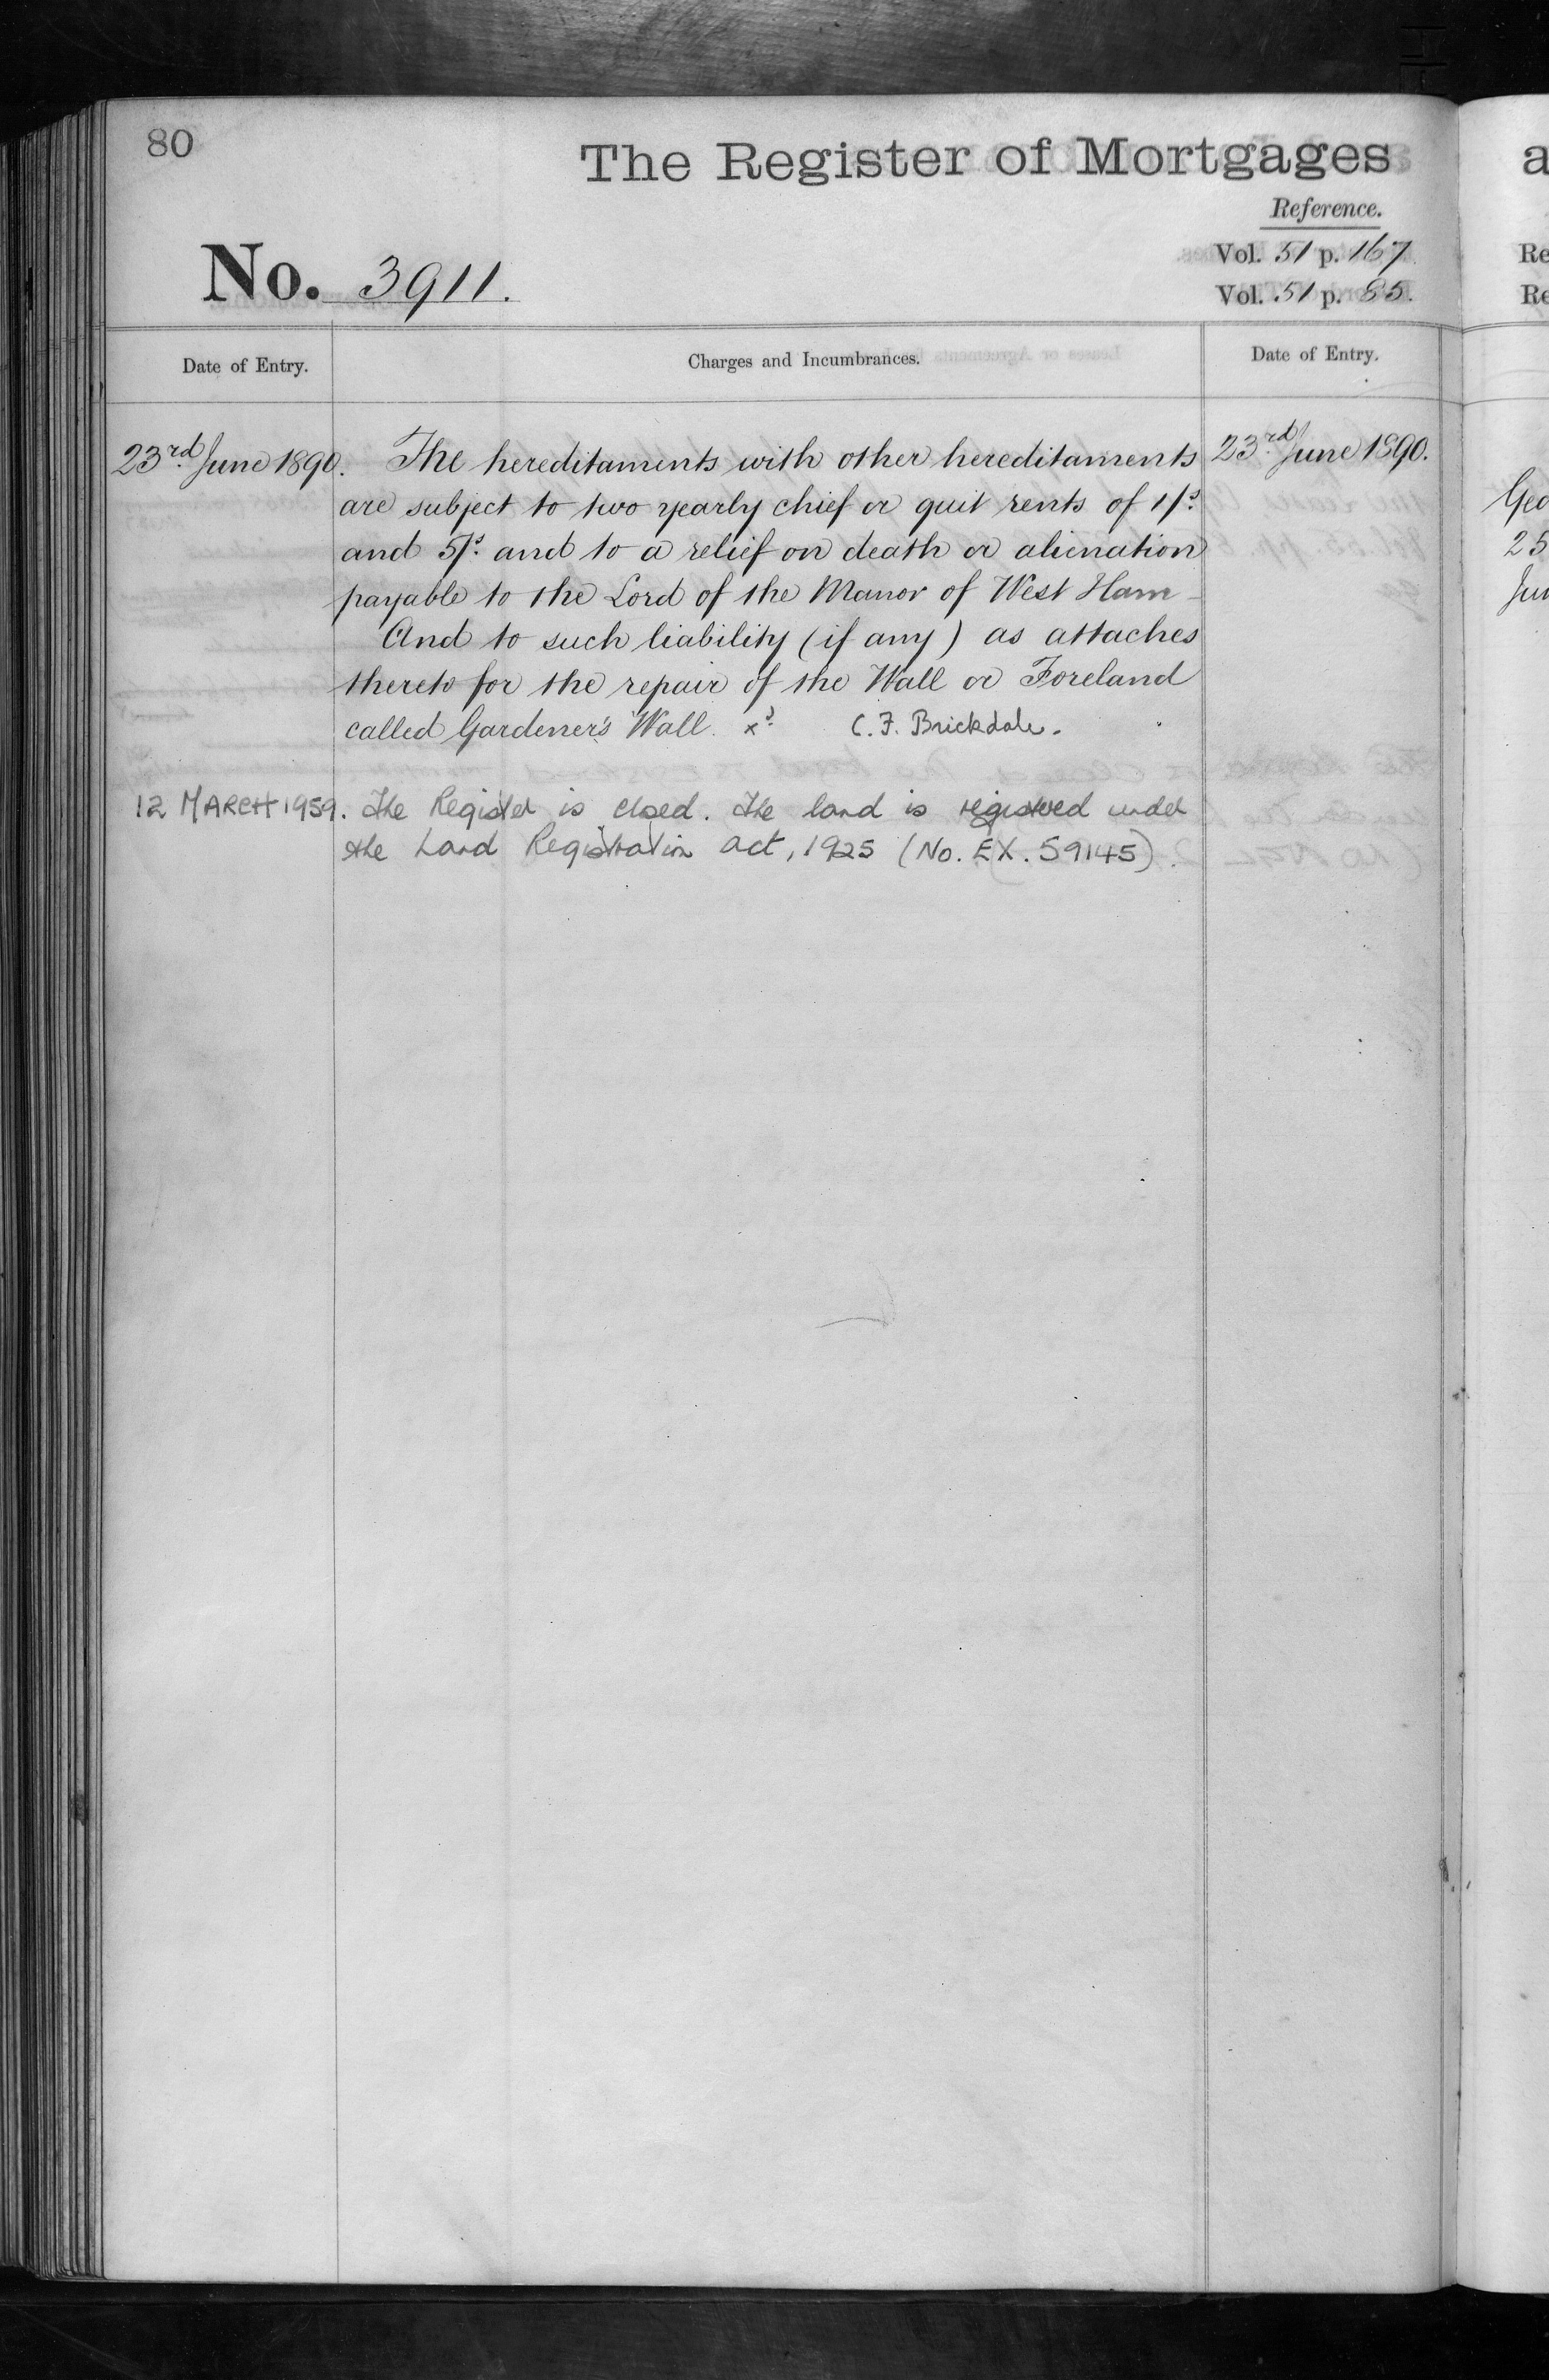 80
The Register of Mortgages
Reference.
No. 3911.
Vol. 51 p. 167
Vol. 51 p. 85.
Date of Entry.
Charges and Incumbrances.
Date of Entry.
23rd June 1890. The hereditaments with other hereditaments 23rd June 1890.
are subject to two yearly chief or quit rents of 1/s
and 5/s and to a relief on death or alienation
payable to the Lord of the Manor of West Ham
And to such liability (if any) as attaches
thereto for the repair of the Wall or Foreland
called Gardener's Wall. xd C. F. Brickdale.
12 MARCH 1959. The Register is closed. The land is registered under
the Land Registration Act, 1925 (No. EX. 59145).
a
Re
Re
Geo
25
Jun